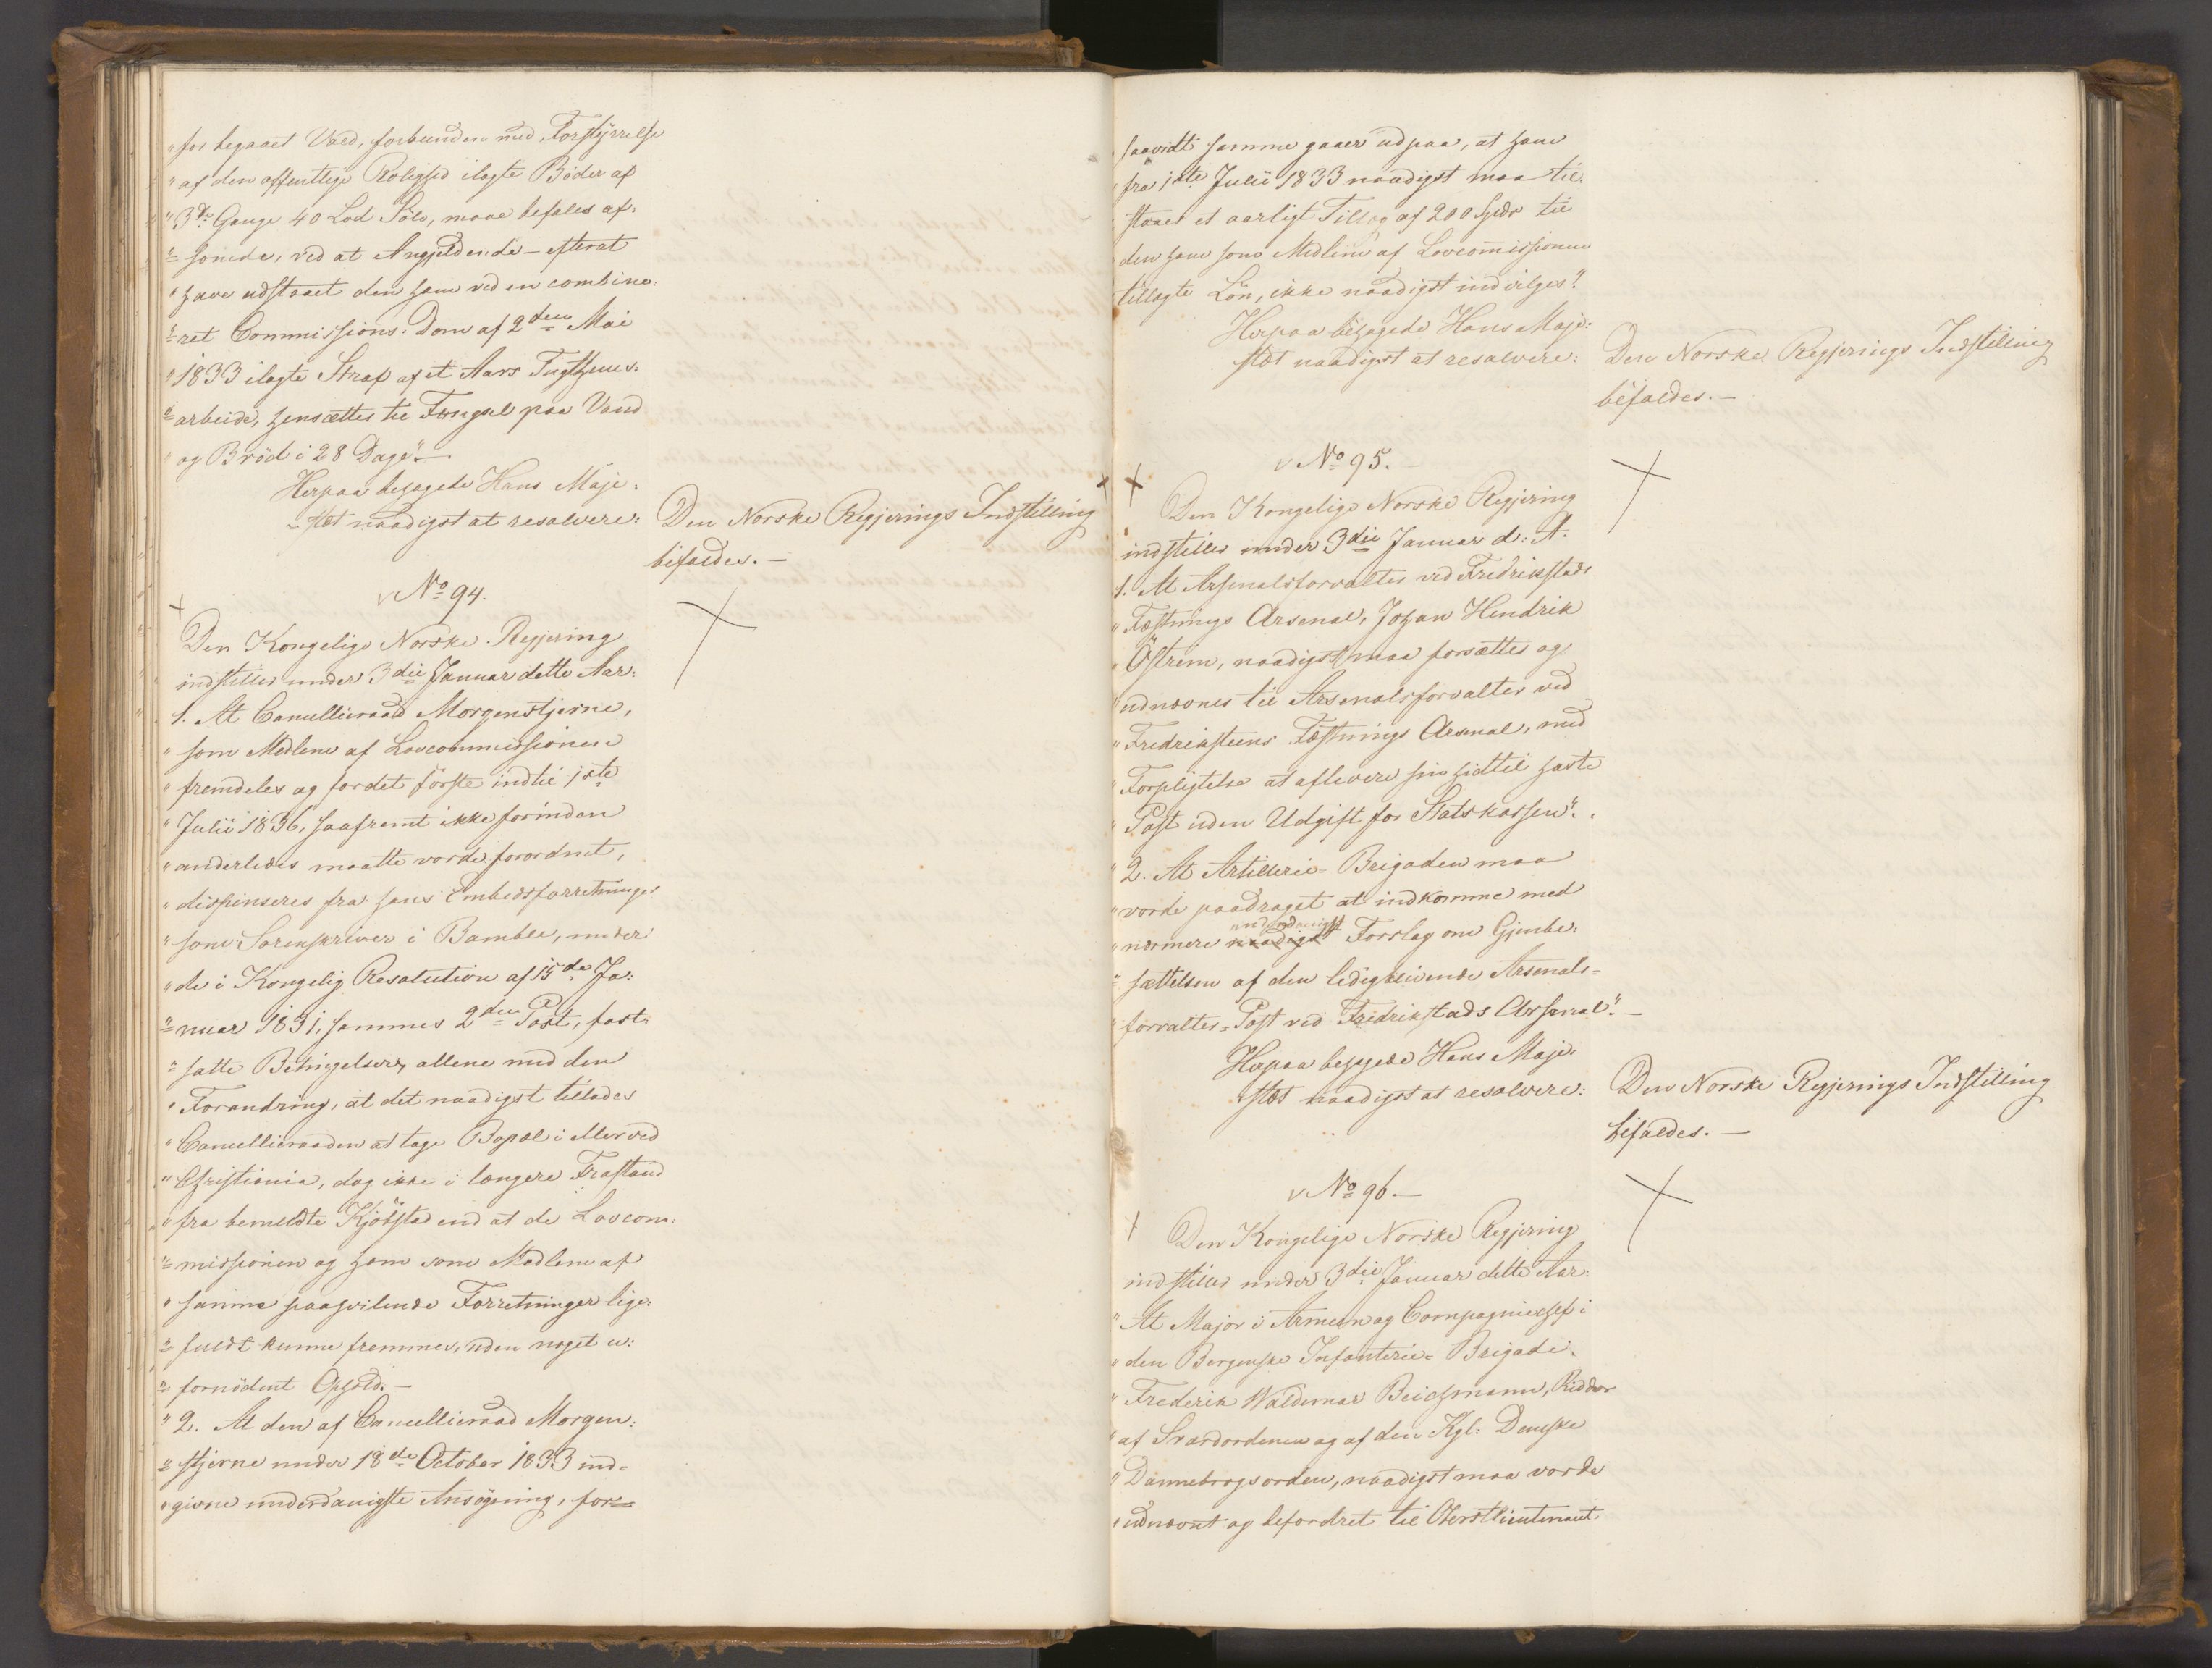 "for begaaet Vold, forbunden med Forstyrrelse
"af den offentlige Rolighed ilagte Bøder af
"3de Gange 40 Lod Sølv, maae befales af-
"=sonede, ved at Angjeldende – efterat
"have udstaaet den ham ved en combine-
"=ret Commissions-Dom af 2den Mai
"1833 ilagte Straf af et Aars Tugthuus-
"=arbeide, hensættes til Fængsel paa Vand
"og Brød i 28 Dage". –
Herpaa behagede Hans Maje-
=stæt naadigst at resolvere:
Den Norske Regjerings Indstilling
bifaldes. –
v No 94.
Den Kongelige Norske Regjering
indstiller under 3die Januar dette Aar:
1. At Cancellieraad Morgenstjerne,
"som Medlem af Lovcommissionen
"fremdeles og for det første indtil 1ste
"Julii 1836, saafremt ikke forinden
"anderledes maatte vorde forordnet,
"dispenseres fra hans Embedsforretninger
"som Sorenskriver i Bamble, under
"de i Kongelig Resolution af 15de Ja-
"=nuar 1831, sammes 2den Post, fast-
"=satte Betingelser, allene med den
"Forandring, at det naadigst tillades
"Cancellieraaden at tage Bopæl i eller ved
"Christiania, dog ikke i længere Frastand
"fra bemeldte Kjøbstad end at de Lovcom-
"=missionen og ham som Medlem af
"samme paahvilende Forretninger lige-
"=fuldt kunne fremmes, uden noget u-
"=fornødent Ophold. –
"2. At den af Cancellieraad Morgen-
"=stjerne under 18de October 1833 ind-
"givne underdanigste Ansøgning, for=
saavidt samme gaaer ud paa, at ham
"fra 1ste Julii 1833 naadigst maa til-
staaes et aarligt Tillæg af 200 Spdr til
den ham som Medlem af Lovcommissionen
tillagte Løn, ikke naadigst indvilges".
Herpaa behagede Hans Maje-
stæt naadigst at resolvere:
Den Norske Regjerings Indstilling
bifaldes. –
v No 95. –
Den Kongelige Norske Regjering
indstiller under 3die Januar d: A:
1. At Arsenalsforvalter ved Fredrikstads
"Fæstnings Arsenal, Johan Hendrik
"Østrem, naadigst maa forsættes og
"udnævnes til Arsenalsforvalter ved
"Fredriksteens Fæstnings Arsenal, med
"Forpligtelse at aflevere sin hidtil havte
"Post uden Udgift for Statskassen".
"2. At Artillerie-Brigaden maa
"vorde paadraget at indkomme med
underdanigst
"nærmere naadigst Forslag om Gjenbe-
"=sættelsen af den ledigblivende Arsenals=
"forvalter=Post ved Fredrikstads Arsenal". –
Herpaa behagede Hans Maje-
stæt naadigst at resolvere:
Den Norske Regjerings Indstilling
bifaldes. –
v No 96. –
Den Kongelige Norske Regjering
indstiller under 3die Januar dette Aar:
"At Major i Armeen og Compagniechef i
"den Bergenske Infanterie=Brigade,
"Frederik Waldemar Beichmann, Ridder
"af Sværdordenen og af den Kgl: Danske
"Dannebrogsorden, naadigst maa vorde
"udnævnt og befordret til Oberstlieutenant